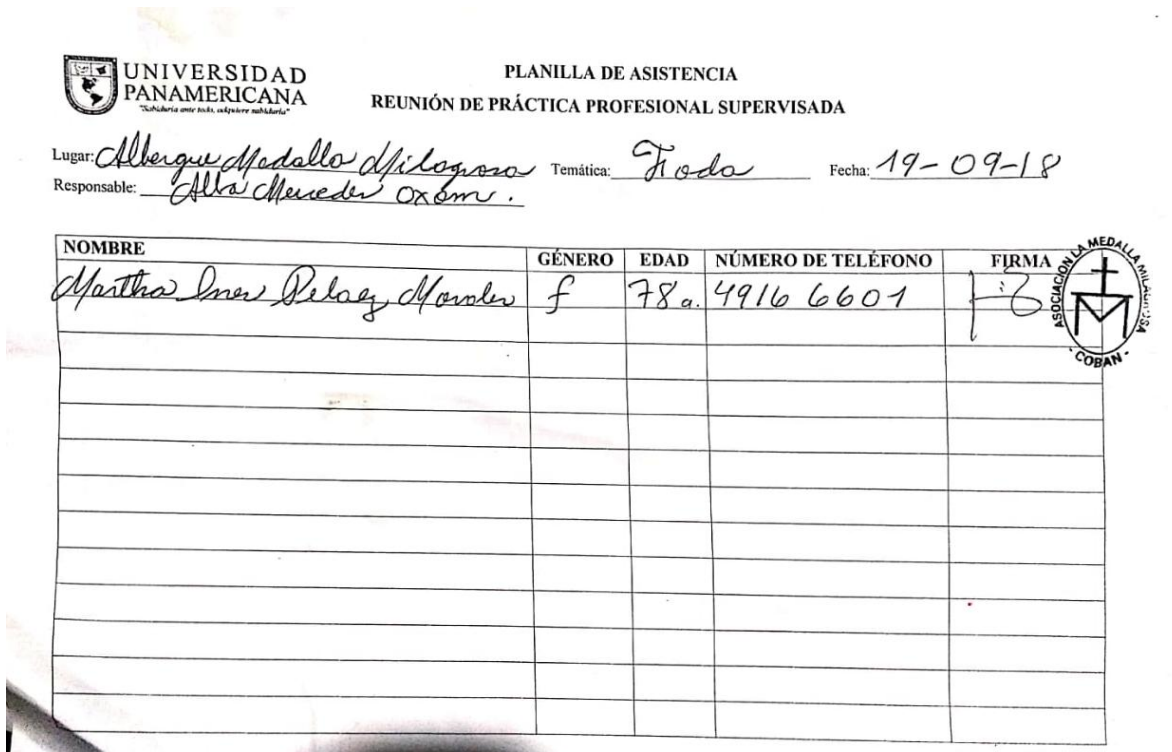 UNIVERSIDAD
PANAMERICANA
"Sabiduría ante todo, adquiere sabiduría"
PLANILLA DE ASISTENCIA
REUNIÓN DE PRÁCTICA PROFESIONAL SUPERVISADA
Lugar: Albergue Medalla Milagrosa Temática: Foda Fecha: 19-09-18
Responsable: Alba Mercedes Oxóm.
NOMBRE GÉNERO EDAD NÚMERO DE TELÉFONO FIRMA
Martha Ines Pelaez Morales f 78 a. 4916 6601
ASOCIACION LA MEDALLA MILAGROSA
- COBAN -